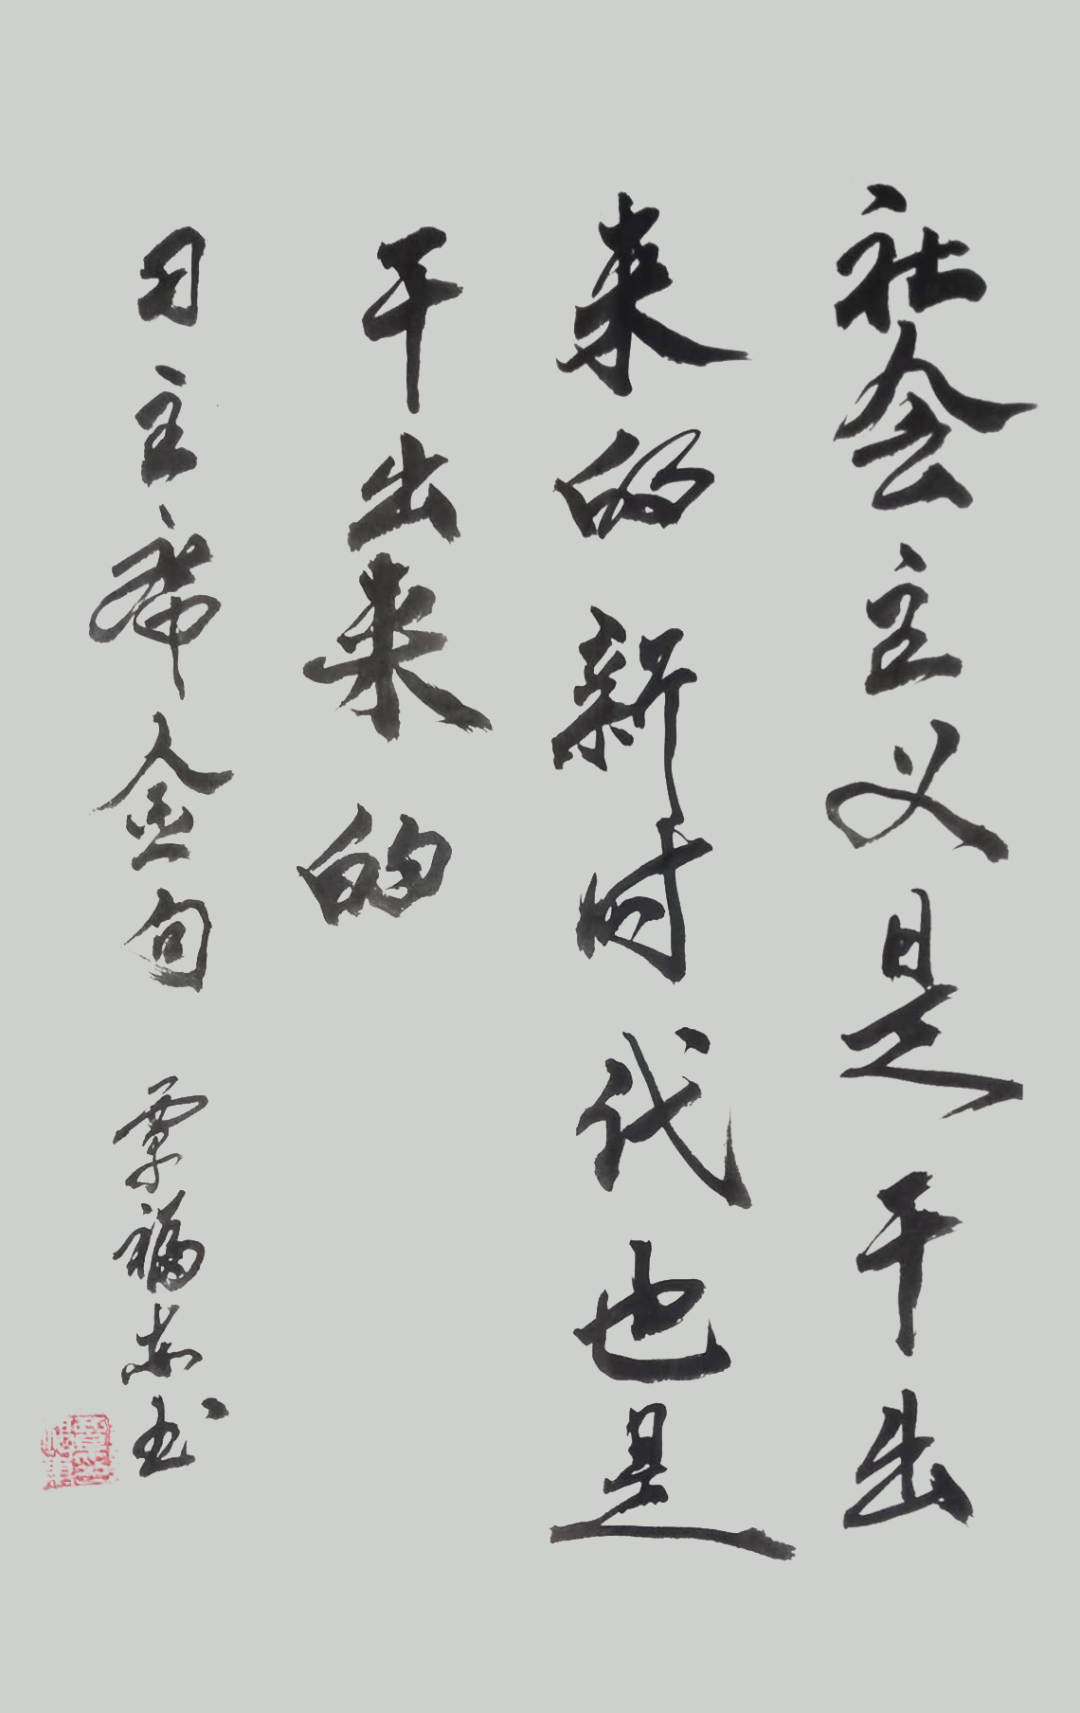 社会主义是干出
来的新时代也是
干出来的
习主席金句 覃福安书